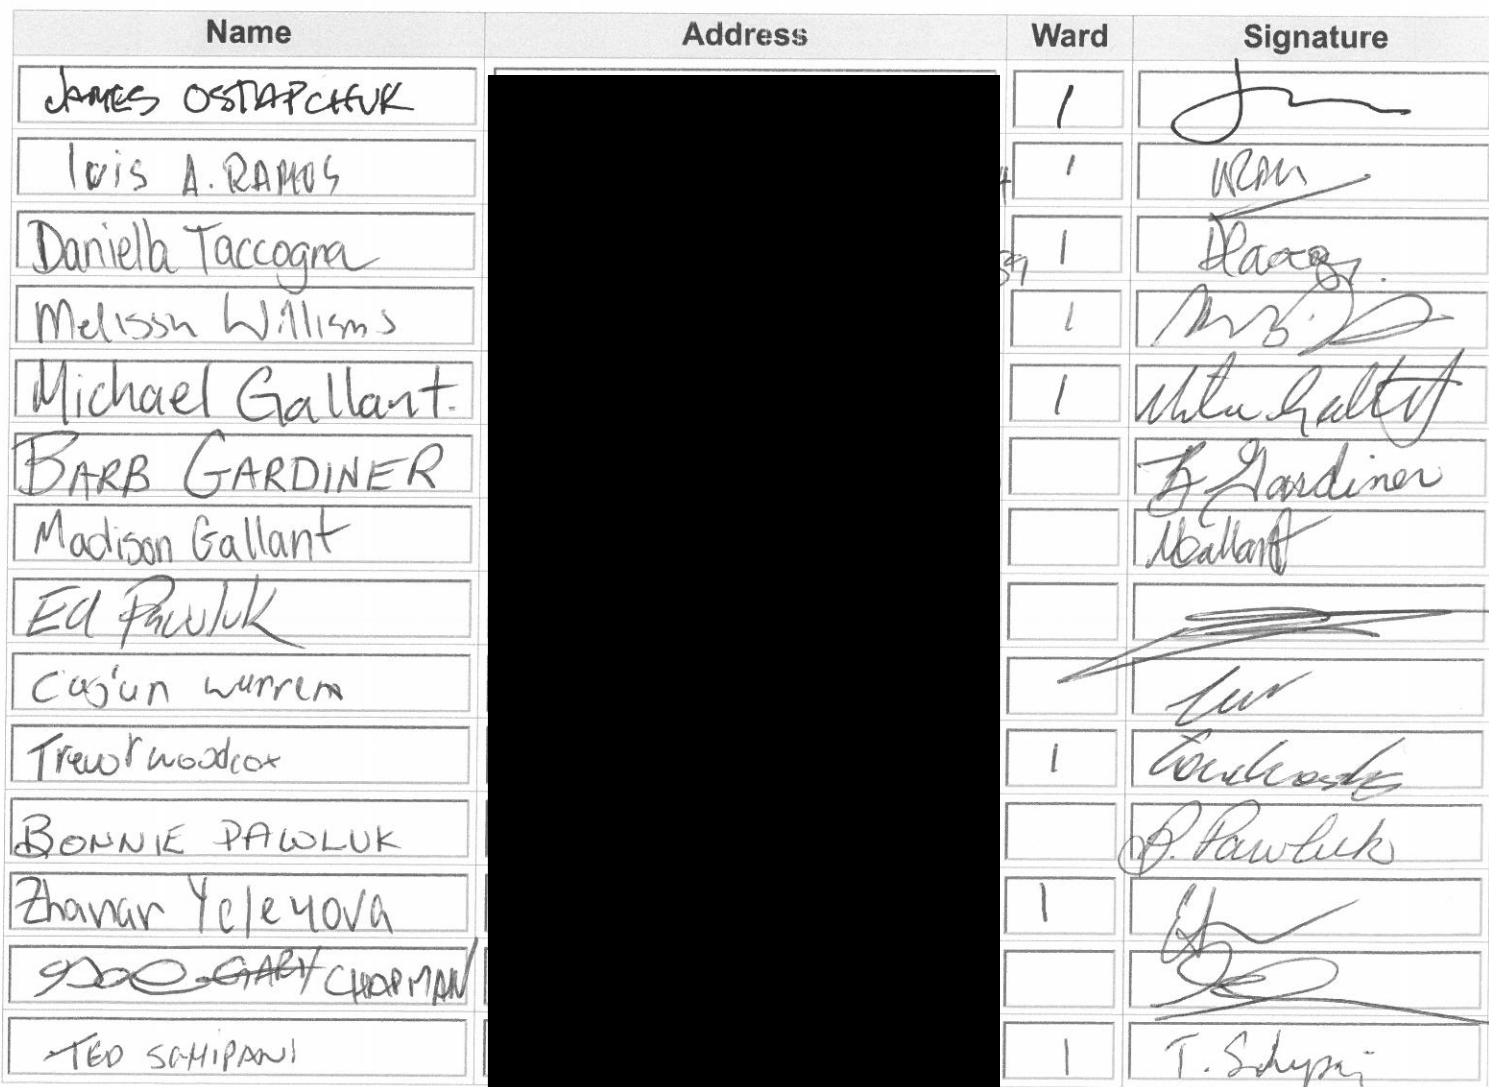 Name Address Ward Signature
JAMES OSTAPCHUK 1
luis A. RAMOS 1
Daniella Taccogna 1
Melissa Williams 1
Michael Gallant. 1
BARB GARDINER B Gardiner
Madison Gallant MGallant
Ed Pawluk
Cajun warren
Trevor woodcox 1
BONNIE PAWLUK B. Pawluk
Zhanar Yeleyova 1
GARY CHAPMAN
TED SCHIPANI 1 T. Schipani